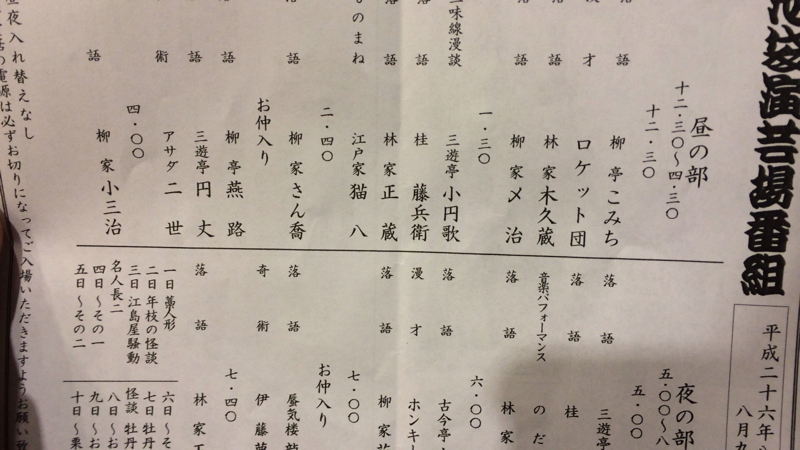 池袋演芸場番組
平成二十六年八
八月九
昼の部
十二・三〇〜四・三〇
十二・三〇
落語 柳亭こみち
漫才 ロケット団
落語 林家木久蔵
落語 柳家〆治
一・三〇
三味線漫談 三遊亭小円歌
落語 桂藤兵衛
落語 林家正蔵
ものまね 江戸家猫八
二・四〇
落語 柳家さん喬
お仲入り
落語 柳亭燕路
落語 三遊亭円丈
奇術 アサダ二世
四・〇〇
落語 柳家小三治
昼夜入れ替えなし
の電源は必ずお切りになってご入場いただきますようお願い致
夜の部
五・〇〇〜八
五・〇〇
落語 三遊亭
落語 桂
音楽パフォーマンス のだ
落語 林家
六・〇〇
落語 古今亭
漫才 ホンキー
落語 柳家
七・〇〇
お仲入り
落語 蜃気楼龍
奇術 伊藤
七・四〇
落語 林家正
一日 藁人形
二日 年枝の怪談
三日 江島屋騒動
名人長二
四日〜その一
五日〜その二
六日〜そ
七日 牡丹
怪談 牡丹
八日〜お
九日〜お
十日〜栗